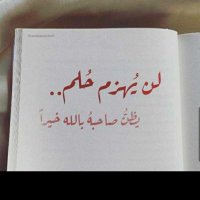 لن يُهزم حُلم..
يظنُّ صاحبهُ بالله خيراً